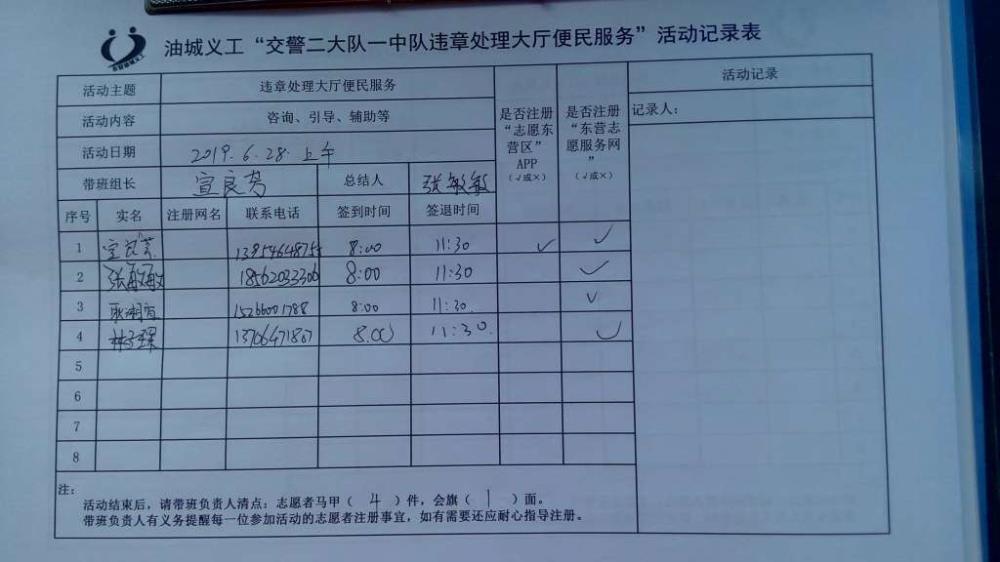 油城义工“交警二大队一中队违章处理大厅便民服务”活动记录表
活动主题 违章处理大厅便民服务 是否注册“志愿东营区”APP（√或×） 是否注册“东营志愿服务网”（√或×） 活动记录
活动内容 咨询、引导、辅助等 记录人：
活动日期 2019.6.28.上午
带班组长 宣良芳 总结人 张敏敏
序号 实名 注册网名 联系电话 签到时间 签退时间
1 8:00 11:30 √ √
2 张敏敏 18562033306 8:00 11:30 √
3 15266001788 8:00 11:30 √
4 13706471867 8:00 11:30 √
5
6
7
8
注：
活动结束后，请带班负责人清点：志愿者马甲（ 4 ）件，会旗（ 1 ）面。
带班负责人有义务提醒每一位参加活动的志愿者注册事宜，如有需要还应耐心指导注册。